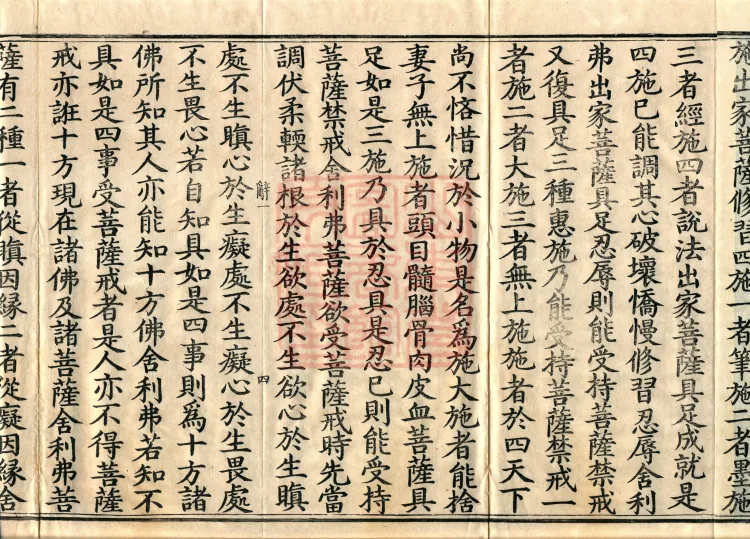 施出家菩薩修習四施一者筆施二者墨施
三者經施四者說法出家菩薩具足成就是
四施已能調其心破壞憍慢修習忍辱舍利
弗出家菩薩具足忍辱則能受持菩薩禁戒
又復具足三種惠施乃能受持菩薩禁戒一
者施二者大施三者無上施施者於四天下
尚不悋惜況於小物是名為施大施者能捨
妻子無上施者頭目髓腦骨肉皮血菩薩具
足如是三施乃具於忍具是忍已則能受持
菩薩禁戒舍利弗菩薩欲受菩薩戒時先當
調伏柔輭諸根於生欲處不生欲心於生瞋
辭一
四
處不生瞋心於生癡處不生癡心於生畏處
不生畏心若自知具如是四事則為十方諸
佛所知其人亦能知十方佛舍利弗若知不
具如是四事受菩薩戒者是人亦不得菩薩
戒亦誑十方現在諸佛及諸菩薩舍利弗菩
薩有二種一者從瞋因緣二者從癡因緣舍